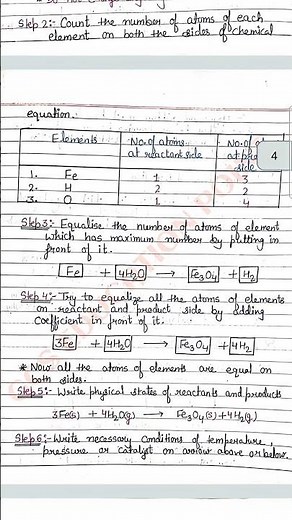 Step 2:- Count the number of atoms of each
element on both the sides of chemical
equation.
Elements No. of atoms at reactant side No. of at side
1. Fe 1 3
2. H 2 2
3. O 1 4
4
Step 3:- Equalise the number of atoms of element
which has maximum number by putting in
front of it.
Fe + 4H2O → Fe3O4 + H2
Step 4:- Try to equalize all the atoms of elements
on reactant and product side by adding
coefficient in front of it.
3Fe + 4H2O → Fe3O4 + 4H2
* Now all the atoms of elements are equal on
both sides.
Step 5:- Write physical states of reactants and products
3Fe(s) + 4H2O(g) → Fe3O4(s) + 4H2(g)
Step 6:- Write necessary conditions of temperature,
pressure or catalyst on arrow above or below.